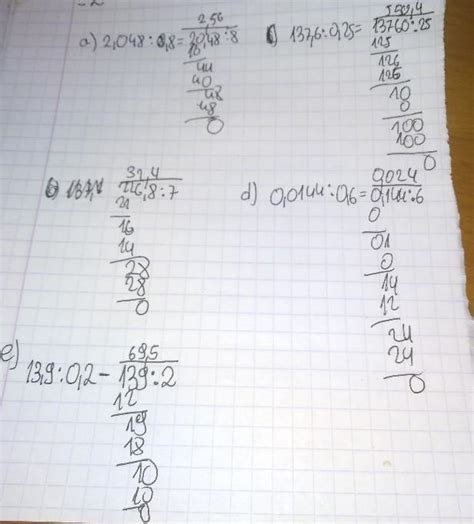 2,56
a) 2,048 : 0,8 = 20,48 : 8
16
44
40
48
48
0
550,4
137,6 : 0,25 = 13760 : 25
125
126
125
10
0
100
100
0
32,4
226,8 : 7
21
16
14
28
28
0
0,024
d) 0,0144 : 0,6 = 0,144 : 6
0
01
0
14
12
24
24
0
69,5
e) 13,9 : 0,2 - 139 : 2
12
19
18
10
10
0